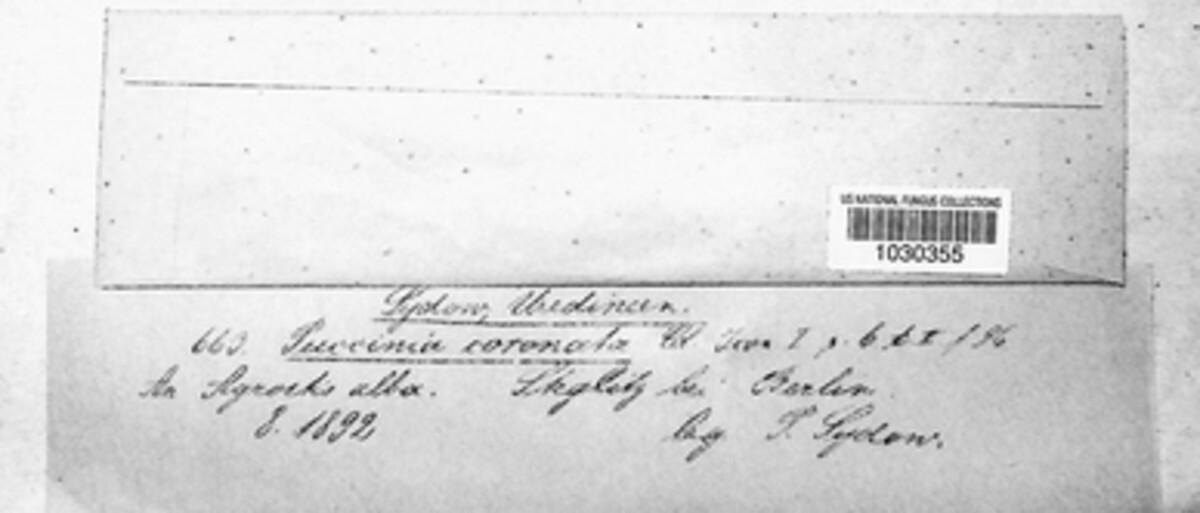 US NATIONAL FUNGUS COLLECTIONS
1030355
Sydow, Uredineen.
663. Puccinia coronata Cd. Icon I p. 6 t. I f. 96
An Agrostis alba. Steglitz bei Berlin
8. 1892 leg. P. Sydow.